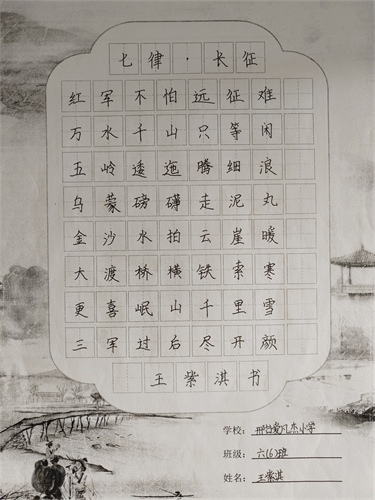 七律·长征
红军不怕远征难
万水千山只等闲
五岭逶迤腾细浪
乌蒙磅礴走泥丸
金沙水拍云崖暖
大渡桥横铁索寒
更喜岷山千里雪
三军过后尽开颜
王紫淇书
学校：邢台爱凡杰小学
班级：六(6)班
姓名：王紫淇